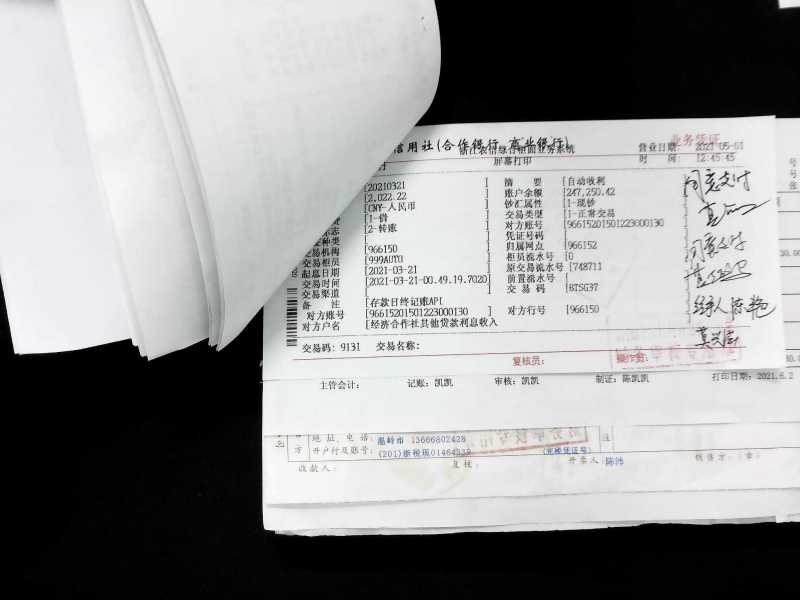 信用社(合作银行 商业银行)
业务凭证
浙江农信综合柜面业务系统
营业日期: 2021-05-01
屏幕打印
时 间: 12:45:45
[20210321 ] 摘 要 [自动收利
[2,022.22 ] 账户余额 [247,250.42
[CNY-人民币 ] 钞汇属性 [1-现钞
[1-借 ] 交易类型 [1-正常交易
[2-转账 ] 对方账号 [966152015012230001​30
交易种类 [ ] 凭证号码 [
交易机构 [966150 ] 归属网点 [966152
交易柜员 [999AUTO ] 柜员流水号 [0
起息日期 [2021-03-21 ] 原交易流水号 [748711
交易时间 [2021-03-21-00.49.19.7020] 前置流水号 [
交易渠道 [ ] 交 易 码 [BTSG37
备 注 [存款日终记账API
对方账号 [966152015012230001​30 ] 对方行号 [966150
对方户名 [经济合作社其他贷款利息收入
交易码: 9131 交易名称:
同意支付
同意支付
经手人 陈艳
复核员:
操作员:
主管会计: 记账: 凯凯 审核: 凯凯 制证: 陈凯凯 打印日期: 2021.6.2
地 址、电 话: 温岭市 13666802428
方 开户行及账号: (201)浙税现01464339 (完税凭证号) 注
收款人: 复核: 开票人: 陈沛 销售方: (章)